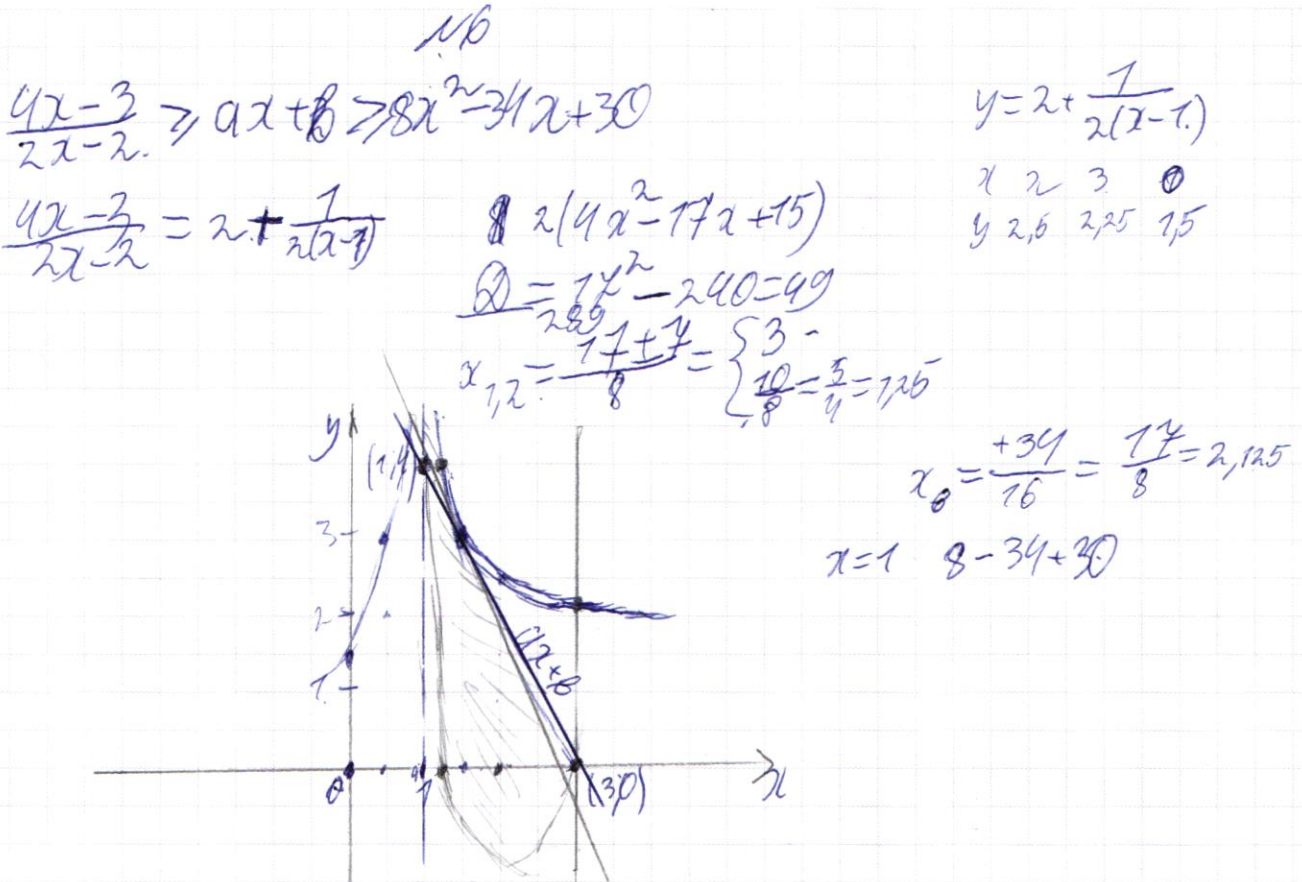 №6
(4x-3)/(2x-2) ≥ ax+b ≥ 8x²-34x+30
(4x-3)/(2x-2) = 2 + 1/(2(x-1))
2(4x²-17x+15)
D = 17² - 240 = 49
289
x₁,₂ = (17±7)/8 = { 3 ; 10/8 = 5/4 = 1,25
y = 2 + 1/(2(x-1))
x 2 3 0
y 2,5 2,25 1,5
x₀ = +34/16 = 17/8 = 2,125
x=1 8-34+30
y
(1,4)
3
2
1
ax+b
0 1 (3,0) x